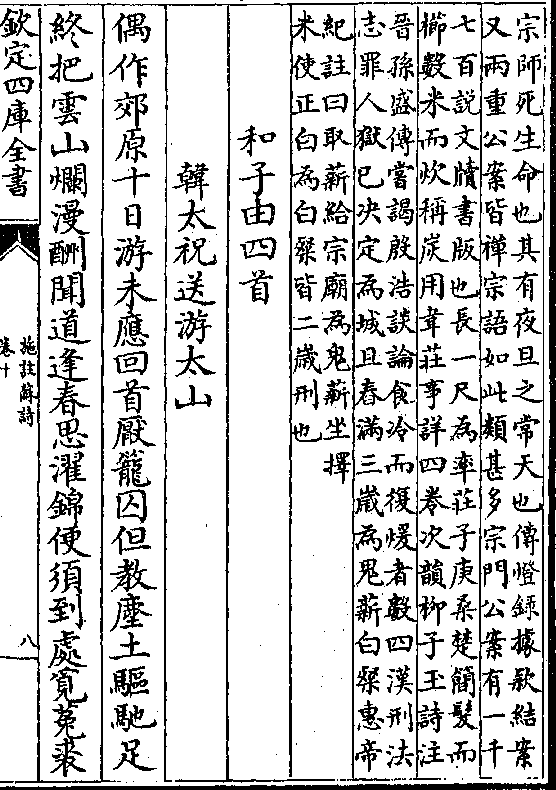 宗師死生命也其有夜旦之常天也傳燈録據欵結案
又兩重公案皆禅宗語如此類甚多宗門公案有一千
七百説文牘書版也長一尺為率莊子庚桑楚簡髮而
櫛數米而炊稱炭用韋莊事詳四巻次韻栁子玉詩注
晉孫盛傳嘗謁殷浩談論食冷而復煖者數四漢刑法
志罪人獄已决定為城旦舂滿三嵗為鬼薪白粲惠帝
紀註曰取薪給宗廟為鬼薪坐擇
米使正白為白粲皆二嵗刑也
和子由四首
韓太祝送游太山
偶作郊原十日游未應回首厭籠囚但教塵土驅馳足
終把雲山爛漫酬聞道逢春思濯錦便須到處覓菟裘
欽定四庫全書
施註蘇詩
卷十
八